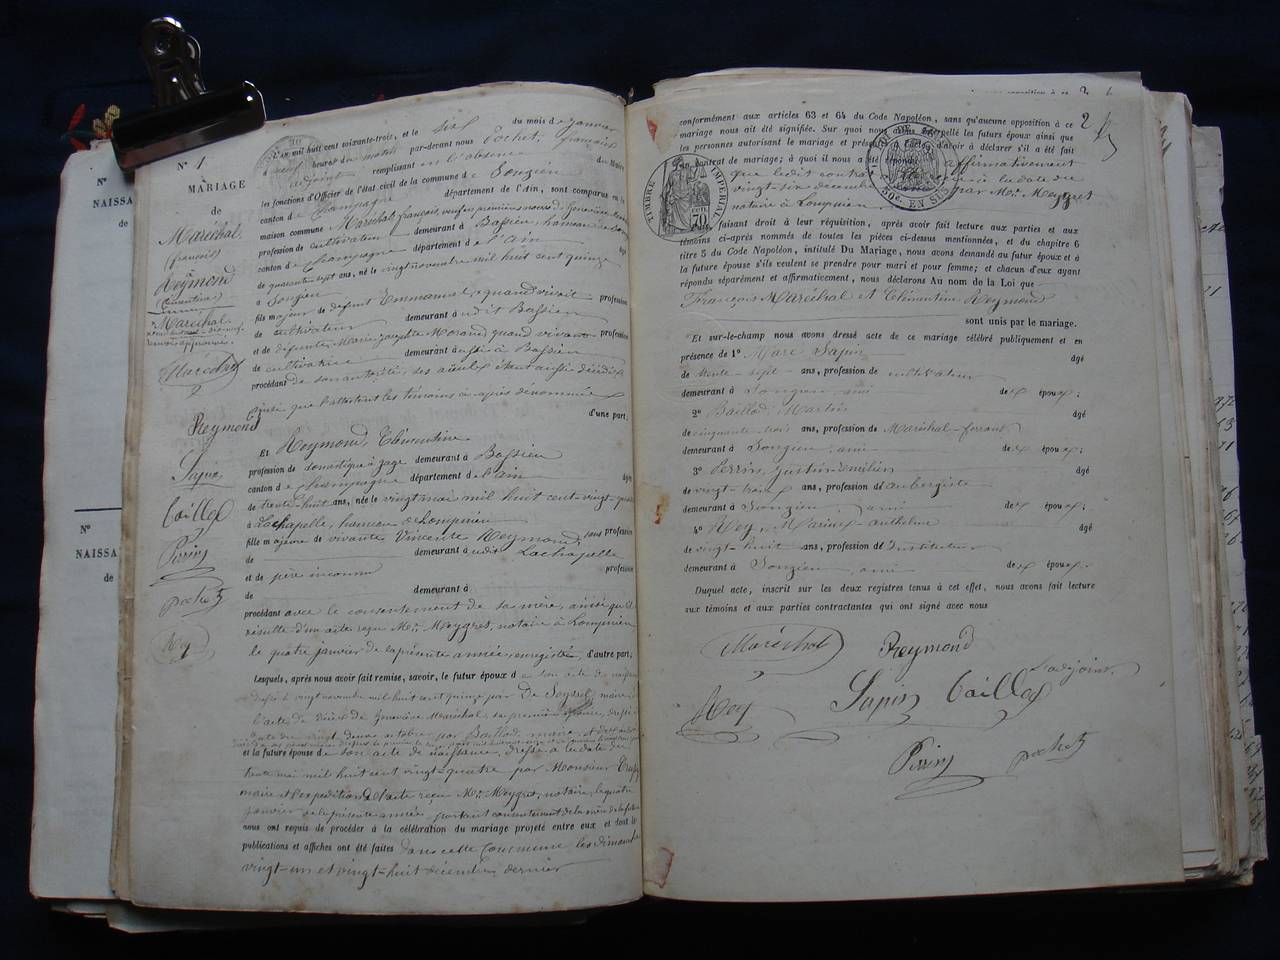 N°
NAISSA
de
N°
NAISSA
de
N° 1.
MARIAGE
de
Maréchal
(françois)
&
Reymond
(Clémentine)
Maréchal
Maréchal
Reymond
Sapin
Baillod
Perrin
Pochet
Rey
L'an mil huit cent soixante-trois, et le six du mois de janvier
à heures du matin par-devant nous Pochet, françois
adjoint remplissant en l'absence du Maire
les fonctions d'Officier de l'état civil de la commune de Songieu
canton de Champagne département de l'Ain, sont comparus en la
maison commune Maréchal françois, veuf en premières noces de Geneviève
profession de cultivateur demeurant à Bassieu, hameau de
canton de Champagne département de l'ain âgé
de quarante sept ans, né le vingt novembre mil huit cent quinze
à Songieu
fils majeur de défunt Emmanuel, quand vivait profession
de cultivateur demeurant à udit Bassieu
et de défunte Marie josephte Morand quand vivait profession
de cultivatrice demeurant aussi à Bassieu
procédant de son autorité, ses aïeuls étant aussi décédés
ainsi que l'attestent les témoins ci-après dénommés
d'une part;
Et Reymond, Clémentine
profession de domestique à gage demeurant à Bassieu
canton de Champagne département de l'ain âgée
de trente-huit ans, née le vingt mai mil huit cent-vingt-quatre
à Lachapelle, hameau de Lompnieu
fille majeure de vivante Vincente Reymond sans profession
de demeurant à udit Lachapelle
et de père inconnu profession
de demeurant à
procédant avec le consentement de sa mère, ainsi qu'il
résulte d'un acte reçu Me. Meygret, notaire à Lompnieu
le quatre janvier de la présente année, enregistré, d'autre part;
Lesquels, après nous avoir fait remise, savoir, le futur époux de son acte de naissance
dressé le vingt novembre mil huit cent quinze par De Seyssel maire
l'acte de décès de Geneviève Maréchal, sa première épouse, dressé
date du vingt deux octobre par Baillod, maire,
et la future épouse de son acte de naissance, dressé à la date du
trente mai mil huit cent vingt-quatre par Monsieur
maire et l'expédition de l'acte reçu Me. Meygret, notaire, le quatre
janvier de la présente année, portant consentement de la mère de la future
nous ont requis de procéder à la célébration du mariage projeté entre eux et dont les
publications et affiches ont été faites dans cette Commune les dimanches
vingt-un et vingt-huit décembre dernier
2
conformément aux articles 63 et 64 du Code Napoléon, sans qu'aucune opposition à ce
mariage nous ait été signifiée. Sur quoi nous avons interpellé les futurs époux ainsi que
les personnes autorisant le mariage et présentes à l'acte, d'avoir à déclarer s'il a été fait
contrat de mariage; à quoi il nous a été répondu affirmativement
que ledit contrat à la date du
vingt-six décembre par Me. Meygret
notaire à Lompnieu
TIMBRE IMPÉRIAL
70
50c. EN SUS
faisant droit à leur réquisition, après avoir fait lecture aux parties et aux
témoins ci-après nommés de toutes les pièces ci-dessus mentionnées, et du chapitre 6
titre 5 du Code Napoléon, intitulé Du Mariage, nous avons demandé au futur époux et à
la future épouse s'ils veulent se prendre pour mari et pour femme; et chacun d'eux ayant
répondu séparément et affirmativement, nous déclarons Au nom de la Loi que
François Maréchal et Clémentine Reymond
sont unis par le mariage.
Et sur-le-champ nous avons dressé acte de ce mariage célébré publiquement et en
présence de 1° Marc Sapin âgé
de trente-sept ans, profession de cultivateur
demeurant à Songieu ami des époux;
2° Baillod, Martin âgé
de cinquante-trois ans, profession de Maréchal-ferrant
demeurant à Songieu, ami des époux;
3° Perrin, Justin-Emilien âgé
de vingt-trois ans, profession d'aubergiste
demeurant à Songieu, ami des époux;
4° Rey, Marius-Anthelme âgé
de vingt-huit ans, profession d'Instituteur
demeurant à Songieu, ami des époux.
Duquel acte, inscrit sur les deux registres tenus à cet effet, nous avons fait lecture
aux témoins et aux parties contractantes qui ont signé avec nous
Maréchal Reymond
L'adjoint
Rey Sapin Baillod
Perrin Pochet